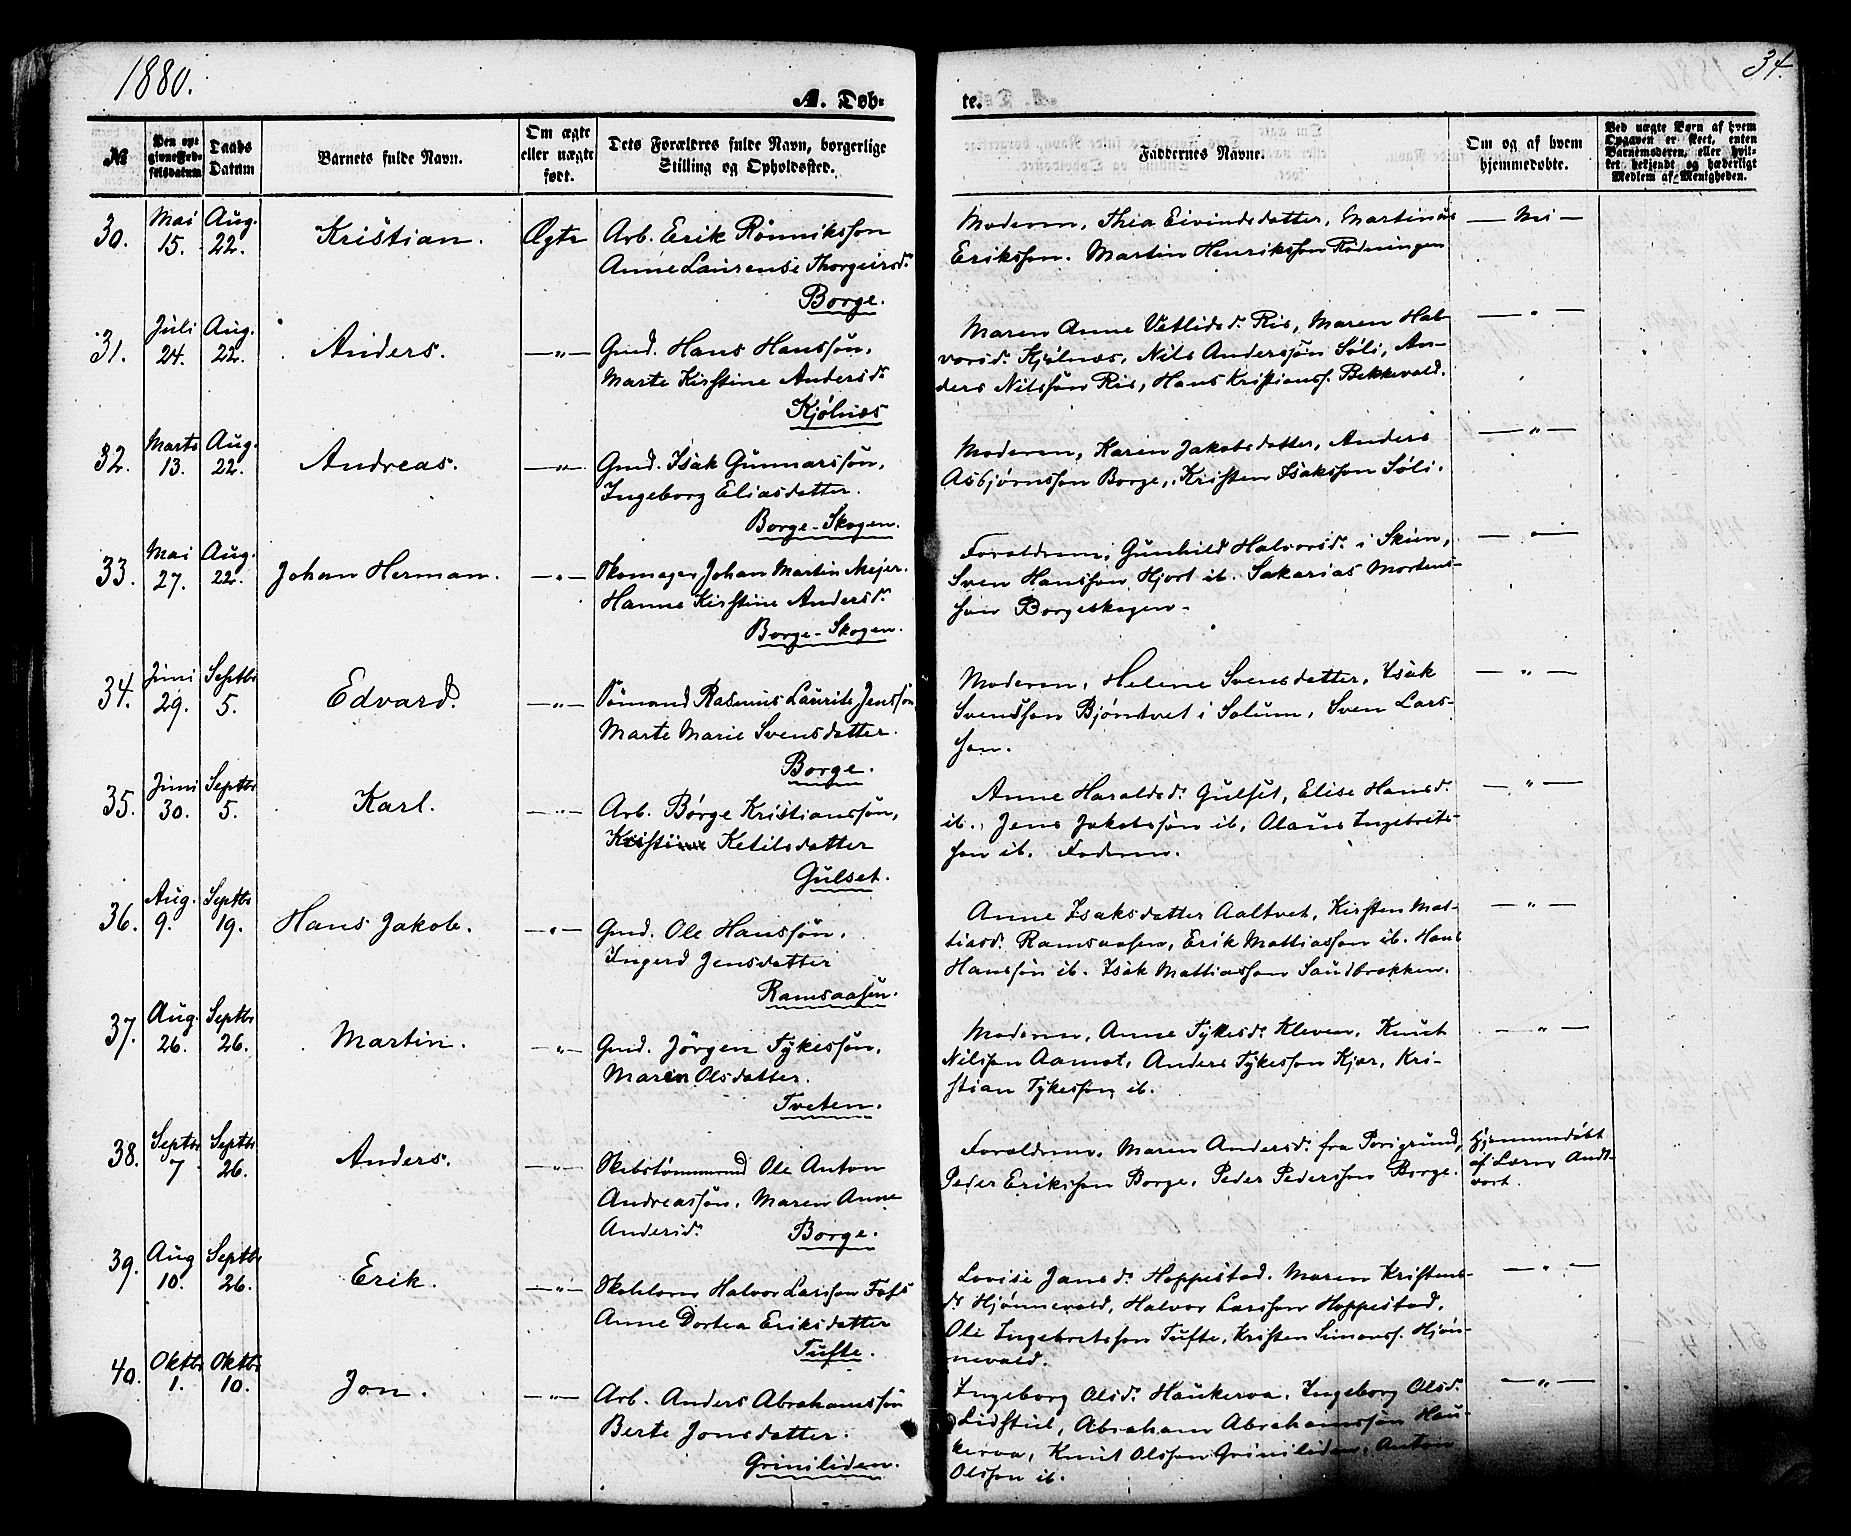 1880.
34.
A. Døb-
te.
№
Den opgivne Fødselsdatum
Daabs Datum
Barnets fulde Navn.
Om ægte eller uægte født.
Dets Forældres fulde Navn, borgerlige Stilling og Opholdssted.
Faddernes Navne.
Om og af hvem hjemmedøbte.
Ved uægte Børn af hvem Opgaven er skeet, enten Barnemoderen, eller hvilket bekjendt og hæderligt Medlem af Menigheden.
30. Mai 15. Aug. 22. Kristian. Ægte Arb. Erik Rönniksson
Anne Laurense Thorgeirsd.
Borge.
Moderen, Thea Eivindsdatter, Martinus — Nei —
Eriksson. Martin Henriksson Rödningen
31. Juli 24. Aug. 22. Anders. —"— Gmd. Hans Hansson,
Marte Kirstine Andersd.
Kjølnæs
Maren Anne Vetlesd. Ris, Maren Hal- —"—
vorsd. Kjølnæs, Nils Anderssön Søli, An-
ders Nilssön Ris, Hans Kristianss. Bekkevold.
32. Marts 13. Aug. 22. Andreas. —"— Gmd. Isak Gunnarsson,
Ingeborg Eliasdatter.
Borge-Skogen.
Moderen, Karen Jakobsdatter, Anders —"—
Asbjørnsson Borge, Kristen Isaksson Søli.
33. Mai 27. Aug. 22. Johan Herman. —"— Skomager Johan Martin Mejer.
Hanne Kirstine Andersd.
Borge-Skogen.
Forældrene, Gunhild Halvorsd. i Skien, —"—
Sven Hansson Hjort ib. Sakarias Mortens-
son Borgeskogen.
34. Juni 29. Septbr 5. Edvard. —"— Sömand Rasmus Laurits Jensson
Marte Marie Svensdatter.
Borge.
Moderen, Helene Svensdatter, Isak —"—
Svendsson Bjørntvet i Solum, Sven Lars-
son.
35. Juni 30. Septbr 5. Karl. —"— Arb. Børge Kristianssön,
Kristine Ketilsdatter
Gulset.
Anne Haraldsd. Gulset, Elise Hansd. —"—
ib., Jens Jakobssøn ib, Olaus Ingebrets-
son ib. Faderen.
36. Aug. 9. Septbr 19. Hans Jakob. —"— Gmd. Ole Hanssøn.
Ingerd Jensdatter
Ramsaasen.
Anne Isaksdatter Aaltvet, Kirsten Mat- —"—
tiasd. Ramsaasen, Erik Mattiasson ib. Hans
Hanssön ib. Isak Mattiasson Sandbrækken.
37. Aug. 26. Septbr 26. Martin. —"— Gmd. Jörgen Tykesson,
Maren Olsdatter.
Tveten.
Moderen, Anne Tykesd. Kleven, Knut —"—
Nilsson Aamot, Anders Tykesson Kjær, Kri-
stian Tykesson ib.
38. Septbr 7 Septbr 26. Anders. —"— Skibstömmermd Ole Anton
Andreassön, Maren Anne
Andersd. Borge.
Forældrene, Maren Andersd. fra Porsgrund,
Peder Eriksson Borge. Peder Pedersson Borge.
Hjemmedøbt
af Lærer Andt-
vort.
39. Aug 10. Septbr 26. Erik. —"— Halvor Larsson
Anne Dortea Eriksdatter
Tufte.
Lovise Jansd. Hoppestad. Maren Kristens- —"—
d. Hjønnevald, Halvor Larsson Hoppestad.
Ole Ingebretsson Tufte, Kristen Simonss. Hjøn-
nevald.
40. Oktbr 1. Oktbr 10. Jon. —"— Arb. Anders Abrahamssön
Berte Jonsdatter.
Griniliden.
Ingeborg Olsd. Haukerva. Ingeborg Olsd. —"—
Lidstul, Abraham Abrahamssön Hau-
kerva, Knut Olsson Griniliden, Anton
Olsson ib.